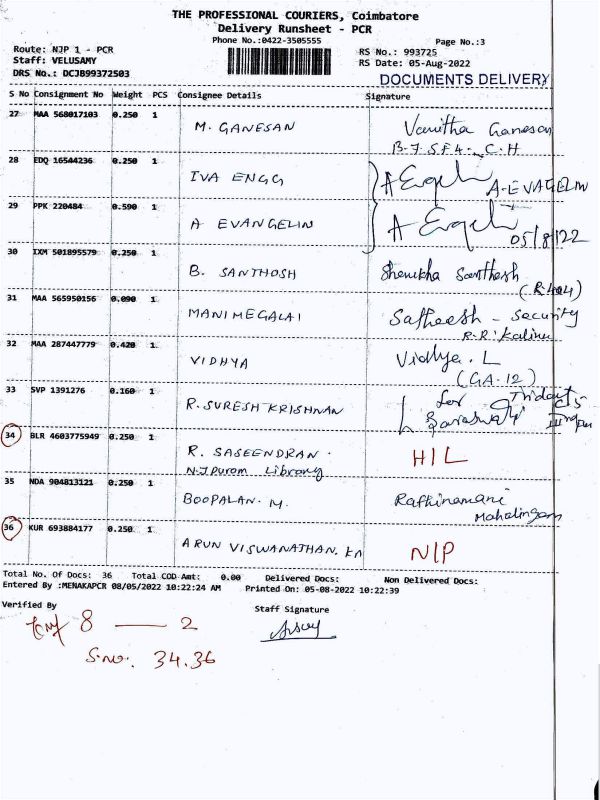 THE PROFESSIONAL COURIERS, Coimbatore
Delivery Runsheet - PCR
Phone No.:0422-3505555
Page No.:3
Route: NJP 1 - PCR
RS No.: 993725
Staff: VELUSAMY
RS Date: 05-Aug-2022
DRS No.: DCJB99372503
DOCUMENTS DELIVERY
S No Consignment No Weight PCS Consignee Details Signature
27 MAA 568017103 0.250 1 M. GANESAN Vanitha Ganesan
B-7 SF4 - C.H
28 EDQ 16544236 0.250 1 IVA ENGG A-EVAGELIN
29 PPK 220484 0.590 1 A EVANGELIN
05/8/22
30 IXM 501895579 0.250 1 B. SANTHOSH Santhosh
(R404)
31 MAA 565950156 0.090 1 MANIMEGALAI Satheesh - Security
32 MAA 287447779 0.420 1 VIDHYA Vidhya. L
(GA-12)
33 SVP 1391276 0.160 1 R. SURESH KRISHNAN for
34 BLR 4603775949 0.250 1 R. SASEENDRAN. HIL
N.J.Purom Library
35 NDA 904813121 0.250 1 BOOPALAN. M. Rathinamani
Mahalingam
36 KUR 693884177 0.250 1 ARUN VISWANATHAN. KN NIP
Total No. Of Docs: 36 Total COD Amt: 0.00 Delivered Docs: Non Delivered Docs:
Entered By :MENAKAPCR 08/05/2022 10:22:24 AM Printed On: 05-08-2022 10:22:39
Verified By
Staff Signature
8 — 2
S.no. 34.36